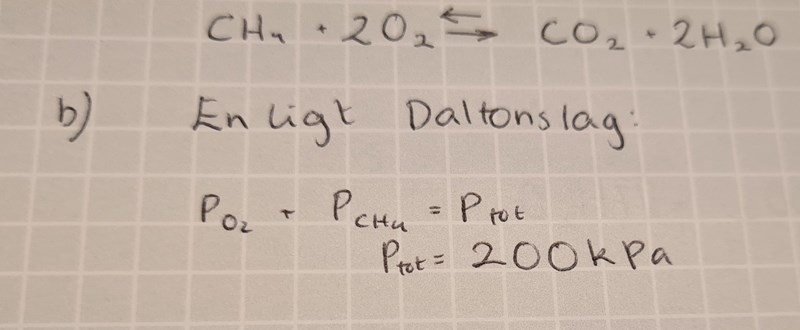 CH₄ + 2O₂ ⇆ CO₂ + 2H₂O
b) Enligt Daltonslag:
P_O₂ + P_CH₄ = P_tot
P_tot = 200kPa